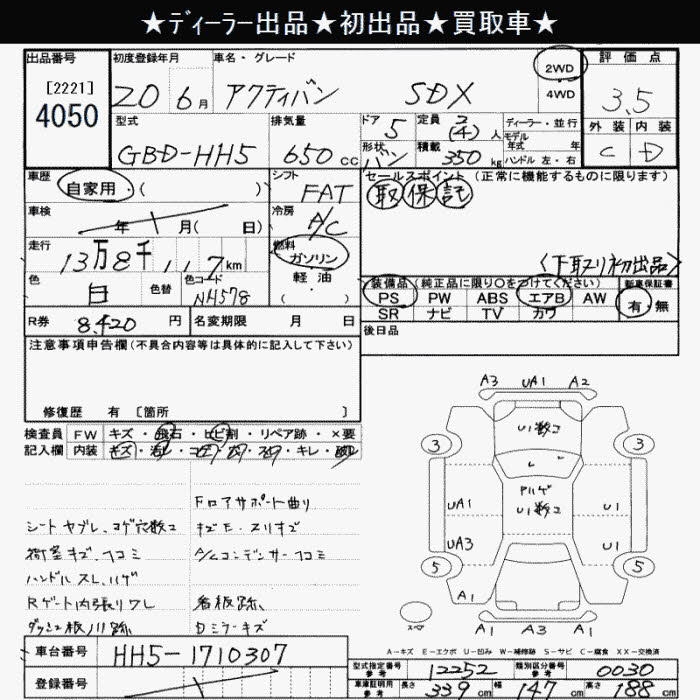 ★ﾃﾞｨｰﾗｰ出品★初出品★買取車★
出品番号
[2221]
4050
初度登録年月
20 6月
車名・グレード
アクティバン SDX
2WD
4WD
評価点
3.5
外装 内装
C D
型式
GBD-HH5
排気量
650cc
ドア
5
形状
バン
定員
2(4)人
積載
350kg
ディーラー・並行
モデル
年式 年
ハンドル 左・右
車歴
自家用・( )
シフト
FAT
車検
年 月( 日)
冷房
A/C
走行
13万8千117km
燃料
ガソリン
軽油
( )
色
白
色替
色コード
NH578
R券
8,420円
名変期限 月 日
セールスポイント(正常に機能するものに限ります)
取 保 記
<下取り初出品>
装備品(純正品に限り○をつけてください)
PS PW ABS エアB AW
SR ナビ TV カワ
新車保証書
有 無
後日品
注意事項申告欄(不具合内容等は具体的に記入して下さい)
修復歴 有 [箇所 ]
検査員
記入欄
FW キズ・飛石・ヒビ割・リペア跡・×要
内装 キズ・汚レ・コゲ・穴・スレ・キレ・
フロアサポート曲り
シートヤブレ、コゲ穴数コ
キズモ・スリキズ
荷室キズ、凹コミ
A/Cコンデンサー凹コミ
ハンドルスレ、ハゲ
Rゲート内張りワレ
看板跡、
ダッシュ板ノリ跡
Dミラーキズ
A3 UA1 A2
U1数コ
3 3
アルハゲ
U1数コ
UA1 U1
UA3 U1
5 5
A1 A1
スペア
A1 A3 A1
A-キズ E-エクボ U-凹み W-補修跡 S-サビ C-腐食 XX-交換済
車台番号
HH5-1710307
登録番号
型式指定番号
参考
12252
類別区分番号
参考
0030
車庫証明用
参考
長さ 339cm 幅 147cm 高さ 188cm